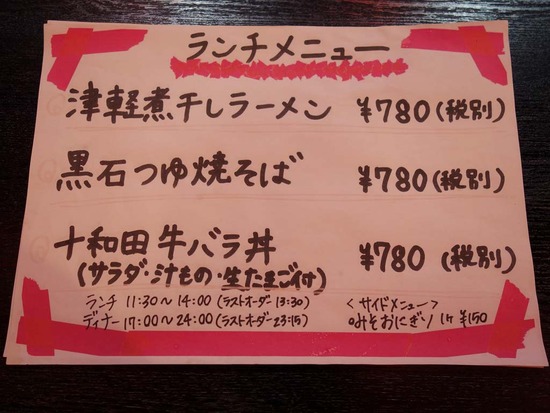 ランチメニュー
津軽煮干しラーメン ¥780(税別)
黒石つゆ焼そば ¥780(税別)
十和田牛バラ丼 ¥780(税別)
(サラダ・汁もの・生たまご付)
ランチ 11:30〜14:00(ラストオーダー13:30)
ディナー17:00〜24:00(ラストオーダー23:15)
<サイドメニュー>
みそおにぎり 1ケ ¥150